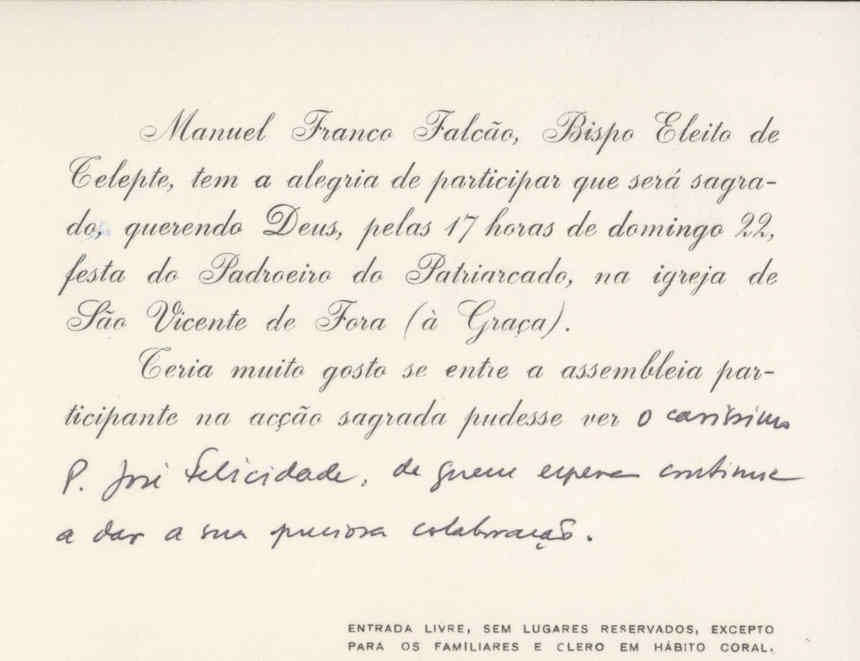 Manuel Franco Falcão, Bispo Eleito de
Telepte, tem a alegria de participar que será sagra-
do, querendo Deus, pelas 17 horas de domingo 22,
festa do Padroeiro do Patriarcado, na igreja de
São Vicente de Fora (à Graça).
Teria muito gosto se entre a assembleia par-
ticipante na acção sagrada pudesse ver o caríssimo
P. José Felicidade, de quem espera continue
a dar a sua preciosa colaboração.
ENTRADA LIVRE, SEM LUGARES RESERVADOS, EXCEPTO
PARA OS FAMILIARES E CLERO EM HÁBITO CORAL.